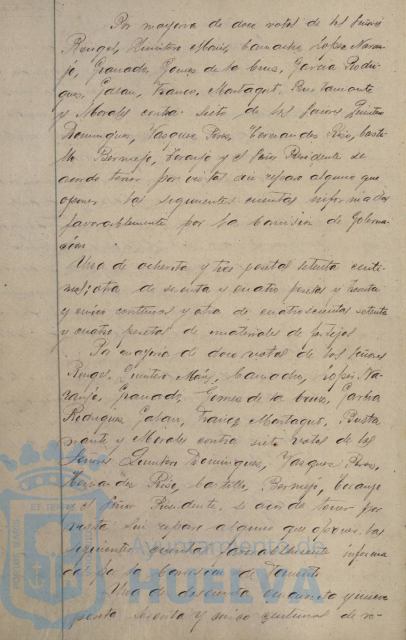 Por mayoria de doce votos de los Señores
Rengel, Quintero Máis, Camacho, López Naran-
jo, Granado, Gomez de la Cruz, Garcia Rodri-
guez, Galan, Franco, Montagut, Bustamante
y Morales contra siete de los Señores Quintero
Dominguez, Vazquez Perez, Hernandez Rio, Casti-
llo, Bermejo, Toranjo y el Señor Presidente se
acordo tener por vistas sin reparo alguno que
oponer las siguientes cuentas informadas
favorablemente por la Comision de Goberna-
cion
Una de ochenta y tres pesetas setenta centi-
mos; otra de sesenta y cuatro pesetas y treinta
y cinco centimos y otra de cuatrocientas setenta
y cuatro pesetas de materiales de festejos
Por mayoria de doce votos de los Señores
Rengel, Quintero Máis, Camacho, López Na-
ranjo, Granado, Gomez de la Cruz, Garcia
Rodriguez, Galan, Franco, Montagut, Busta
mante y Morales contra siete votos de los
Señores Quintero Dominguez, Vazquez Perez,
Hernandez Rio, Castillo, Bermejo, Toranjo
y el Señor Presidente, se acordo tener por
vistas sin reparo alguno que oponer, las
siguientes cuentas favorablemente informa
das por la Comision de Fomento
Una de doscientas cincuenta y nueve
pesetas treinta y cinco centimos de
Ayuntamiento de
HUELVA